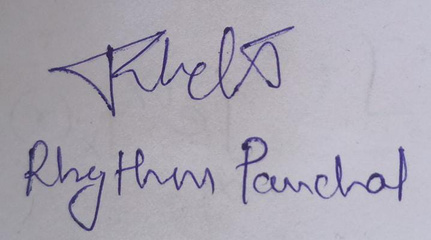 Rhythm Panchal